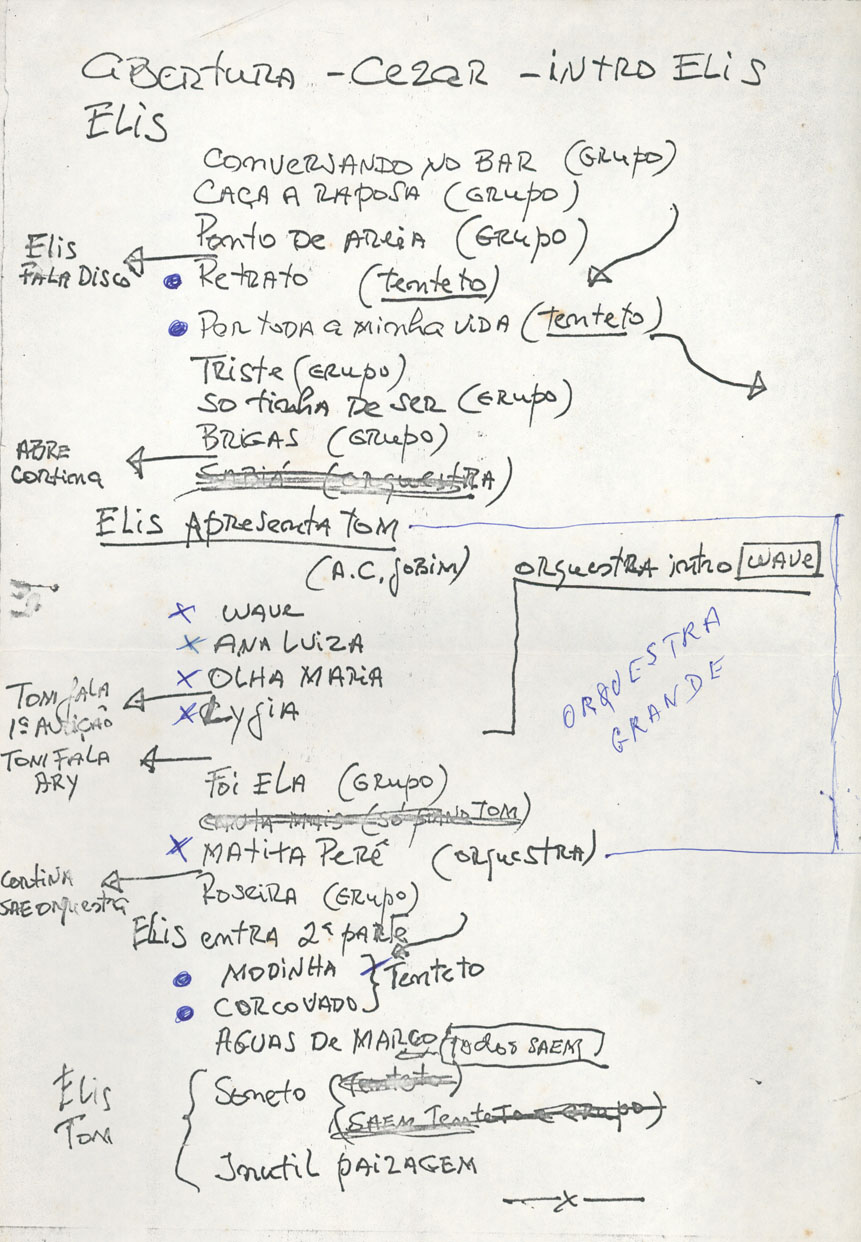 ABERTURA - CEZAR - INTRO ELIS
ELIS
CONVERSANDO NO BAR (GRUPO)
CAÇA A RAPOSA (GRUPO)
PONTO DE AREIA (GRUPO)
Elis
FALA DISCO
RETRATO (tenteto)
POR TODA A MINHA VIDA (tenteto)
TRISTE (GRUPO)
SO tinha DE SER (GRUPO)
BRIGAS (GRUPO)
ABRE
CORTINA
SABIÁ (ORQUESTRA)
ELIS APRESENTA TOM
(A.C. JOBIM)
ORQUESTRA intro WAVE
WAVE
ANA LUIZA
OLHA MARIA
Lygia
ORQUESTRA
GRANDE
TOM FALA
1ª AUDIÇÃO
TOM FALA
ARY
FOI ELA (GRUPO)
(SÓ PIANO TOM)
MATITA PERÊ (ORQUESTRA)
CORTINA
SAE ORQUESTRA
ROSEIRA (GRUPO)
ELIS entra 2ª PARTE
MODINHA } Tenteto
CORCOVADO
AGUAS DE MARÇO (TODOS SAEM)
ELIS
TOM
Soneto (Tenteto)
(SAEM Tenteto E GRUPO)
Inutil PAIZAGEM